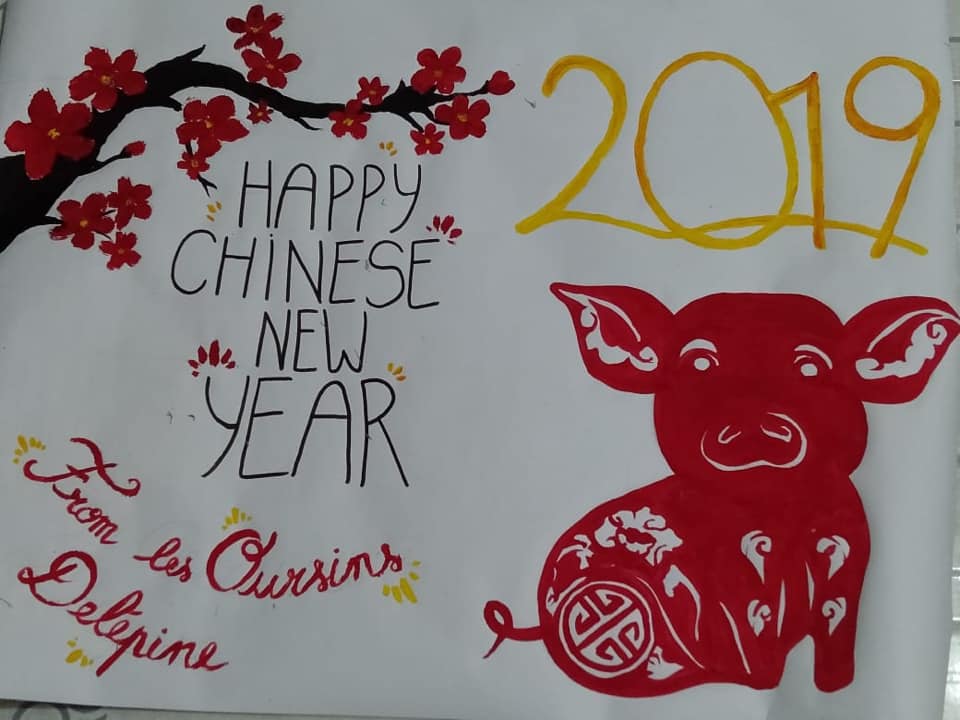 2019
HAPPY
CHINESE
NEW
YEAR
From les Oursins
Delépine